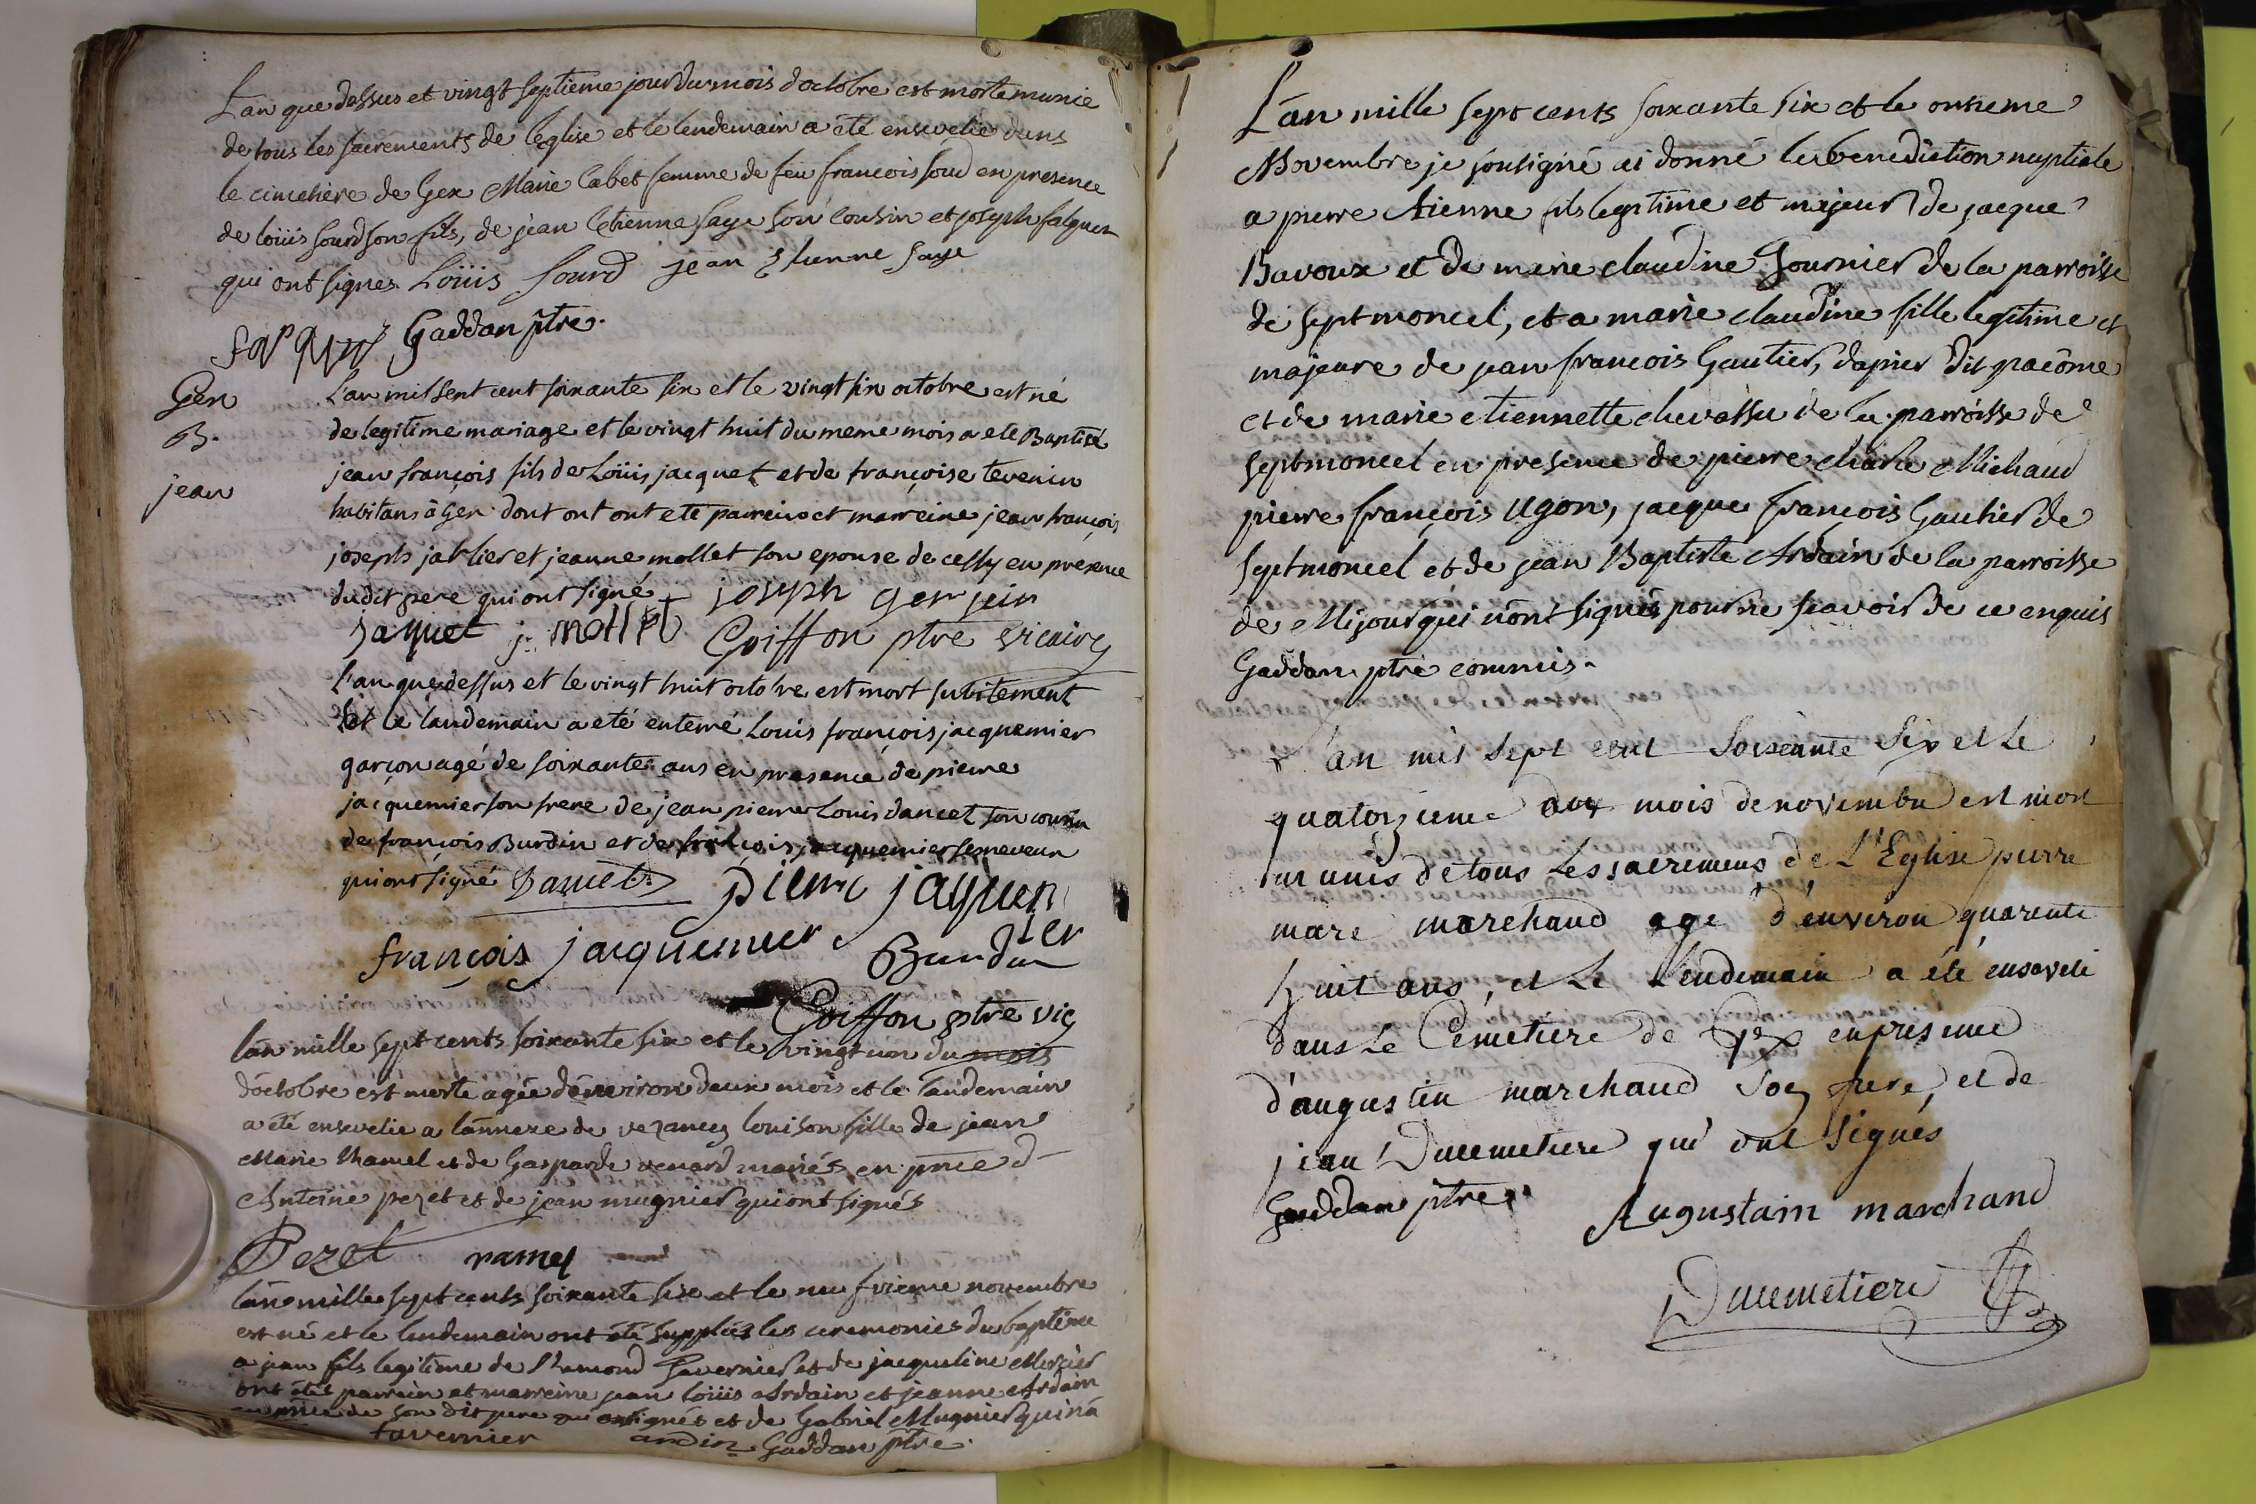 L'an que dessus et vingt septieme jour du mois d'octobre est morte munie
de tous les sacrements de l'eglise et le lendemain a été ensevelie dans
le cimetière de Gex Marie Cabet femme de feu francois sourd en presence
de loüis sourd son fils, de jean Etienne faye son cousin et joseph falquet
qui ont signes Loüis Sourd jean Etienne faye
Gaddan ptre.
Gex
L'an mil sept cent soixante six et le vingt six octobre est né
B.
de legitime mariage et le vingt huit du meme mois a ete Baptisé
jean françois fils de Loüis jacquet et de françoise tevenin
jean
habitans à Gex dont ont ont eté parreins et marreine jean françois
joseph jarlier et jeanne mollet son epouse de cessy en presence
du dit pere qui ont signé joseph ger jein
Jaquet j. mollet Goiffon ptre vicaire
L'an que dessus et le vingt huit octobre est mort subitement
et le landemain a eté enterré Louis françois jacquemier
garçon agé de soixante ans en presence de pierre
jacquemier son frere de jean pierre Louis dancet son cousin
de françois Burdin et de françois jacquemier ses neveux
qui ont signé Danset pierre jaquem
ier
françois jacquemier Burdin
Goiffon ptre vic
L'an mille sept cents soixante six et le vingt un du mois
d'octobre est morte agée d'environ deux mois et le landemain
a été ensevelie a l'annexe de vezancy louison fille de jean
Marie hamel et de Gasparde venard mariés en pnce d
Antoine pezet et de jean mugnier qui ont signés
Pezet ramel
L'an mille sept cents soixante six et le neufvieme novembre
est né et le lendemain ont été supplées les ceremonies du baptême
a jean fils legitime de Tavernier et de jacqueline Mercier
ont étés parrein et marreine jean loüis Ardain et jeanne Ardain
en pnce de son dit pere qui ont signés et de Gabriel Mugnier qui n'a
tavernier ardin Gaddan ptre.
L'an mille sept cents soixante six et le onsieme
Novembre je sousigné ai donné la benediction nuptiale
a pierre Etienne fils legitime et majeur de jacque
Bavoux et de marie claudine Gournier de la parroisse
de septmoncel, et a marie claudine fille legitime et
majeure de jean francois Gautier, dapier dit pacôme
et de marie etiennette chevassu de la parroisse de
septmoncel en presence de pierre charle Michaud
pierre françois Ugon, jacque francois Gautier de
septmoncel et de jean Baptiste Ardain de la parroisse
de Mijour qui n'ont signés pour ne scavoir de ce enquis
Gaddan ptre commis.
L'an mil sept cent soixante Six et le
quatorzieme du mois de novembre est mort
munis de tous les sacremens de L'Eglise pierre
mare marchand age d'environ quarente
huit ans, et le Lendemain a été enseveli
dans le Cemetiere de Gex en presence
d'augustin marchand son frere, et de
jean Ducemetiere qui ont signés
Gaddan ptre. Augustain marchand
Ducemetiere